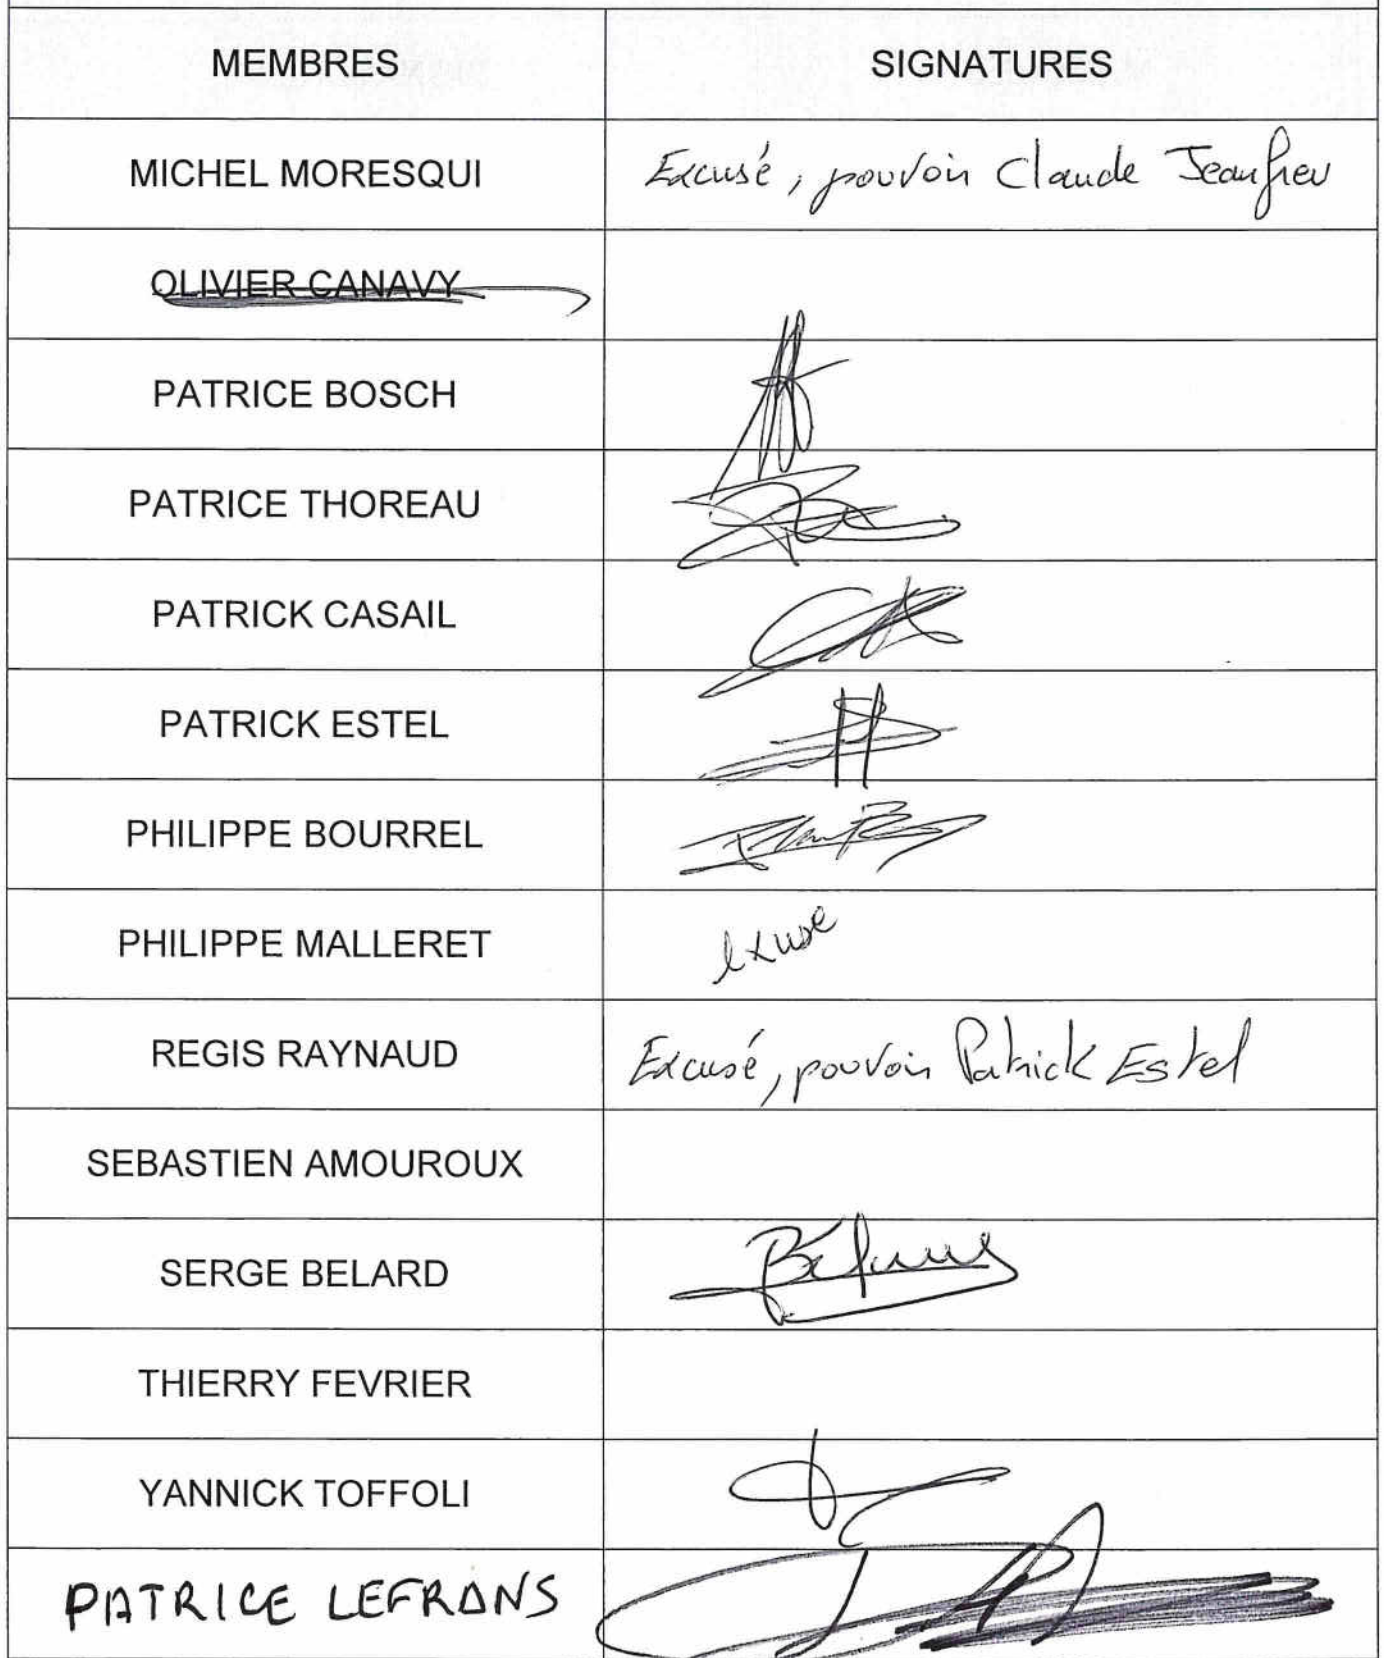 MEMBRES SIGNATURES
MICHEL MORESQUI Excusé, pouvoir Claude
OLIVIER CANAVY
PATRICE BOSCH
PATRICE THOREAU
PATRICK CASAIL
PATRICK ESTEL
PHILIPPE BOURREL
PHILIPPE MALLERET excusé
REGIS RAYNAUD Excusé, pouvoir Patrick Estel
SEBASTIEN AMOUROUX
SERGE BELARD
THIERRY FEVRIER
YANNICK TOFFOLI
PATRICE LEFRANS